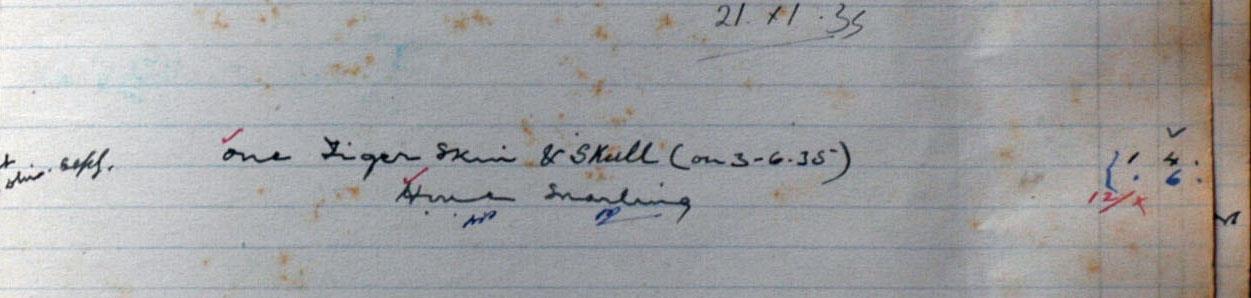 21.XI.35
One Tiger Skin & Skull (on 3-6-35) 1 4.
Snarling 6.
12/X